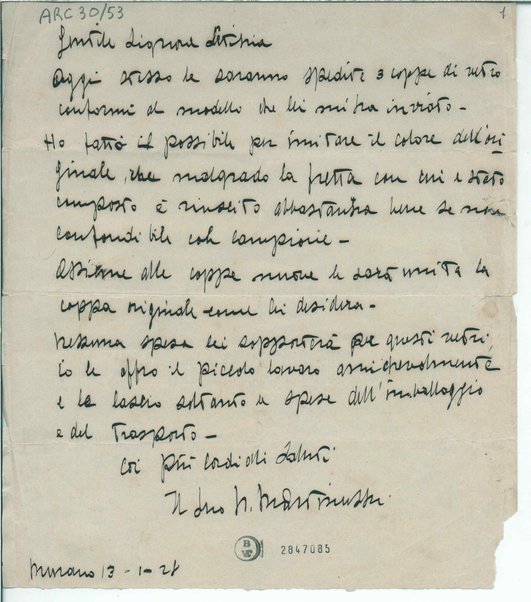 ARC 30/53
1
Gentile Signora Letizia
Oggi stesso le saranno spedite 3 coppe di vetro
conformi al modello che lei mi ha inviato -
Ho fatto il possibile per imitare il colore dell'ori
ginale, che malgrado la fretta con cui è stato
composto è riuscito abbastanza bene se non
confondibile col campione -
Assieme alle coppe nuove le sarà unita la
coppa originale come lei desidera -
Nessuna spesa lei sopporterà per questi vetri,
io le offro il piccolo lavoro amichevolmente
e le lascio soltanto le spese dell'imballaggio
e del trasporto -
Coi più cordiali saluti
Il suo
2847085
Murano 13 - 1 -